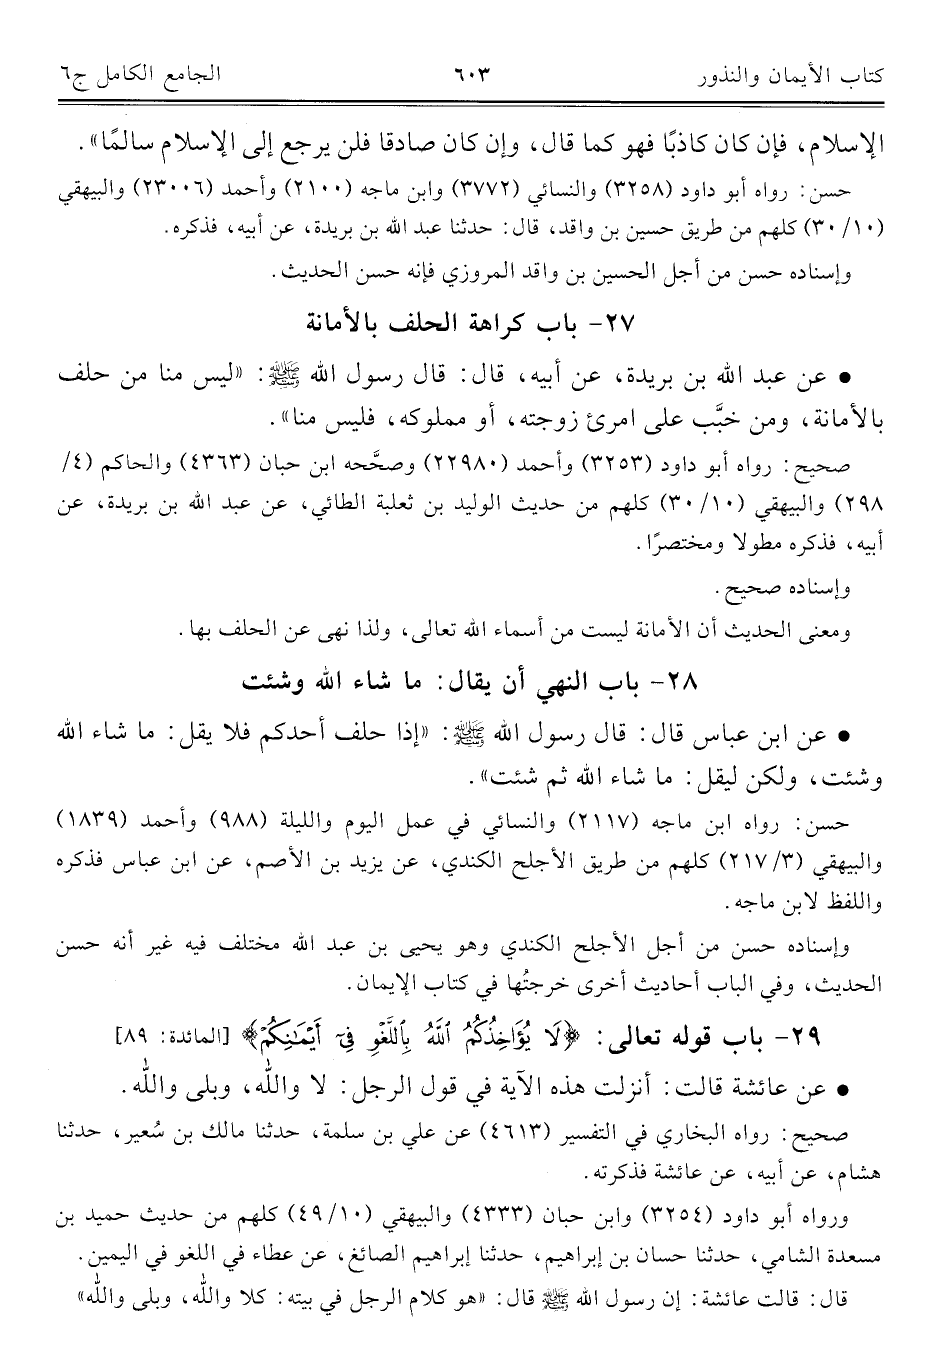 كتاب الأيمان والنذور ٦٠٣ الجامع الكامل ج٦
الإسلام، فإن كان كاذبًا فهو كما قال، وإن كان صادقا فلن يرجع إلى الإسلام سالمًا».
حسن: رواه أبو داود (٣٢٥٨) والنسائي (٣٧٧٢) وابن ماجه (٢١٠٠) وأحمد (٢٣٠٠٦) والبيهقي
(٣٠/١٠) كلهم من طريق حسين بن واقد، قال: حدثنا عبد الله بن بريدة، عن أبيه، فذكره.
وإسناده حسن من أجل الحسين بن واقد المروزي فإنه حسن الحديث.
٢٧- باب كراهة الحلف بالأمانة
• عن عبد الله بن بريدة، عن أبيه، قال: قال رسول الله ﷺ: «ليس منا من حلف
بالأمانة، ومن خبَّب على امرئ زوجته، أو مملوكه، فليس منا».
صحيح: رواه أبو داود (٣٢٥٣) وأحمد (٢٢٩٨٠) وصحَّحه ابن حبان (٤٣٦٣) والحاكم (٤/
٢٩٨) والبيهقي (٣٠/١٠) كلهم من حديث الوليد بن ثعلبة الطائي، عن عبد الله بن بريدة، عن
أبيه، فذكره مطولا ومختصرًا.
وإسناده صحيح.
ومعنى الحديث أن الأمانة ليست من أسماء الله تعالى، ولذا نهى عن الحلف بها.
٢٨- باب النهي أن يقال: ما شاء الله وشئت
• عن ابن عباس قال: قال رسول الله ﷺ: «إذا حلف أحدكم فلا يقل: ما شاء الله
وشئت، ولكن ليقل: ما شاء الله ثم شئت».
حسن: رواه ابن ماجه (٢١١٧) والنسائي في عمل اليوم والليلة (٩٨٨) وأحمد (١٨٣٩)
والبيهقي (٢١٧/٣) كلهم من طريق الأجلح الكندي، عن يزيد بن الأصم، عن ابن عباس فذكره
واللفظ لابن ماجه.
وإسناده حسن من أجل الأجلح الكندي وهو يحيى بن عبد الله مختلف فيه غير أنه حسن
الحديث، وفي الباب أحاديث أخرى خرجتُها في كتاب الإيمان.
٢٩- باب قوله تعالى: ﴿لَا يُؤَاخِذُكُمُ ٱللَّهُ بِٱللَّغْوِ فِىٓ أَيْمَٰنِكُمْ﴾ [المائدة: ٨٩]
• عن عائشة قالت: أنزلت هذه الآية في قول الرجل: لا والله، وبلى والله.
صحيح: رواه البخاري في التفسير (٤٦١٣) عن علي بن سلمة، حدثنا مالك بن سُعير، حدثنا
هشام، عن أبيه، عن عائشة فذكرته.
ورواه أبو داود (٣٢٥٤) وابن حبان (٤٣٣٣) والبيهقي (٤٩/١٠) كلهم من حديث حميد بن
مسعدة الشامي، حدثنا حسان بن إبراهيم، حدثنا إبراهيم الصائغ، عن عطاء في اللغو في اليمين.
قال: قالت عائشة: إن رسول الله ﷺ قال: «هو كلام الرجل في بيته: كلا والله، وبلى والله»